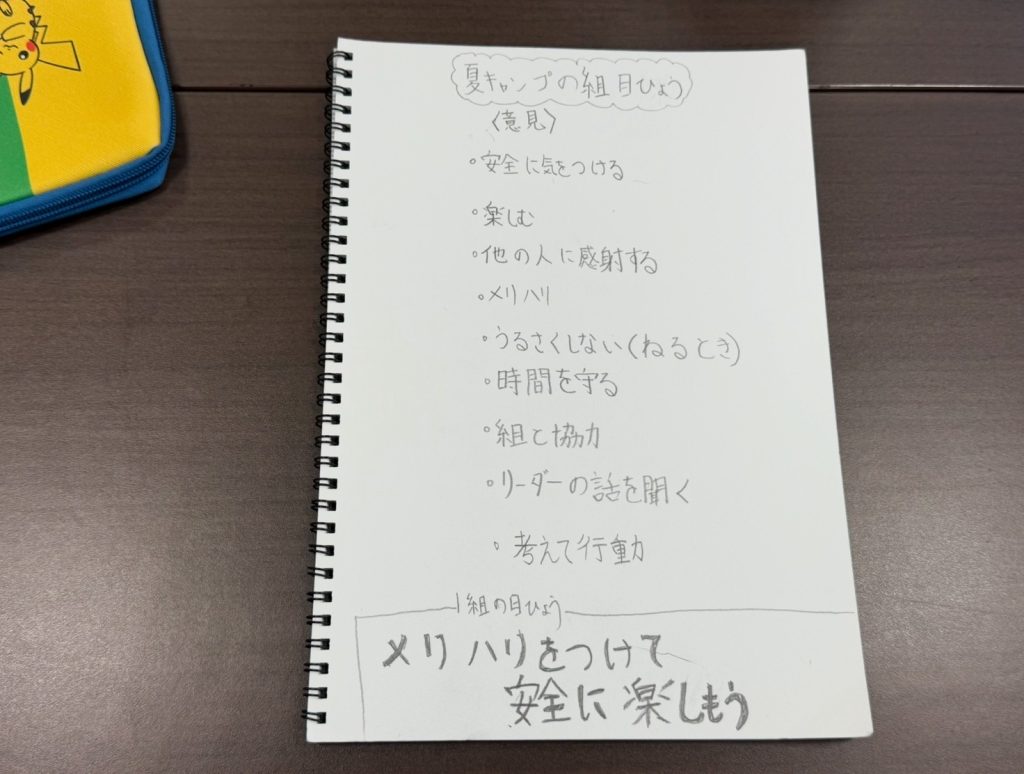 夏キャンプの組目ひょう
〈意見〉
・安全に気をつける
・楽しむ
・他の人に感射する
・メリハリ
・うるさくしない(ねるとき)
・時間を守る
・組と協力
・リーダーの話を聞く
・考えて行動
1組の目ひょう
メリハリをつけて
安全に楽しもう